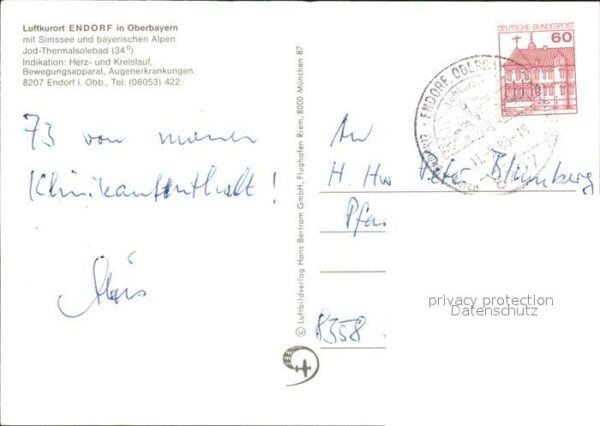 Luftkurort ENDORF in Oberbayern
mit Simssee und bayerischen Alpen
Jod-Thermalsolebad (34°)
Indikation: Herz- und Kreislauf,
Bewegungsapparat, Augenerkrankungen
8207 Endorf i. Obb., Tel. (08053) 422
73 von meinem
Klinikaufenthalt!
Alois
© Luftbildverlag Hans Bertram GmbH, Flughafen Riem, 8000 München 87
DEUTSCHE BUNDESPOST
60
ENDORF OBERBAY
An
H. Hw Peter Blumberg
Pfa
8358
privacy protection
Datenschutz